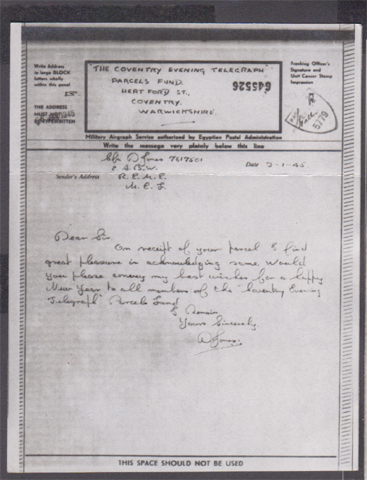 Write Address
in large BLOCK
letters wholly
within this panel
THE ADDRESS
THE COVENTRY EVENING TELEGRAPH
PARCELS FUND.
HERTFORD ST.,
COVENTRY.
WARWICKSHIRE.
645526
Franking Officer's
Signature and
Unit Censor Stamp
Impression
5778
Military Airgraph Service authorised by Egyptian Postal Administration
Write the message very plainly below this line
Cfn D Jones
Sender's Address
R.E.M.E.
M.E.F.
Date 2-1-45
Dear Sir,
On receipt of your parcel I find
great pleasure in acknowledging same. Would
you please convey my best wishes for a happy
New Year to all members of the "Coventry Evening
Telegraph" Parcels Fund
I Remain
Yours Sincerely
D Jones.
THIS SPACE SHOULD NOT BE USED